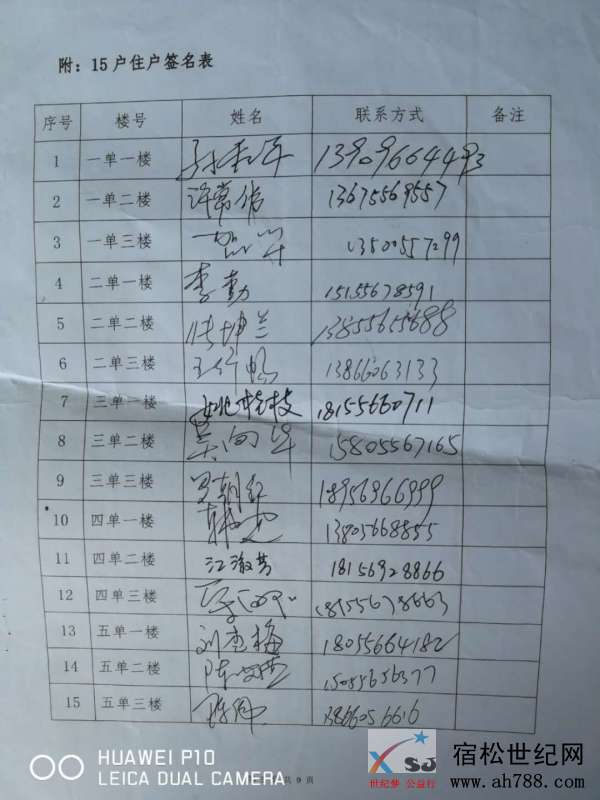 附：15户住户签名表
序号 楼号 姓名 联系方式 备注
1 一单一楼 13909664493
2 一单二楼 许常倍 13675569557
3 一单三楼 13500557299
4 二单一楼 李勤 15155678591
5 二单二楼 张坤兰 13855655688
6 二单三楼 13866063133
7 三单一楼 姚桂枝 18155660711
8 三单二楼 吴向华 15805567165
9 三单三楼 罗朝红 18956966999
10 四单一楼 13805668855
11 四单二楼 江澈芳 18156928866
12 四单三楼 18155678663
13 五单一楼 刘杰梅 18055664182
14 五单二楼 15055656377
15 五单三楼 13866056616
共 9 页
HUAWEI P10
LEICA DUAL CAMERA
XSJ
世纪梦 公益行
宿松世纪网
www.ah788.com